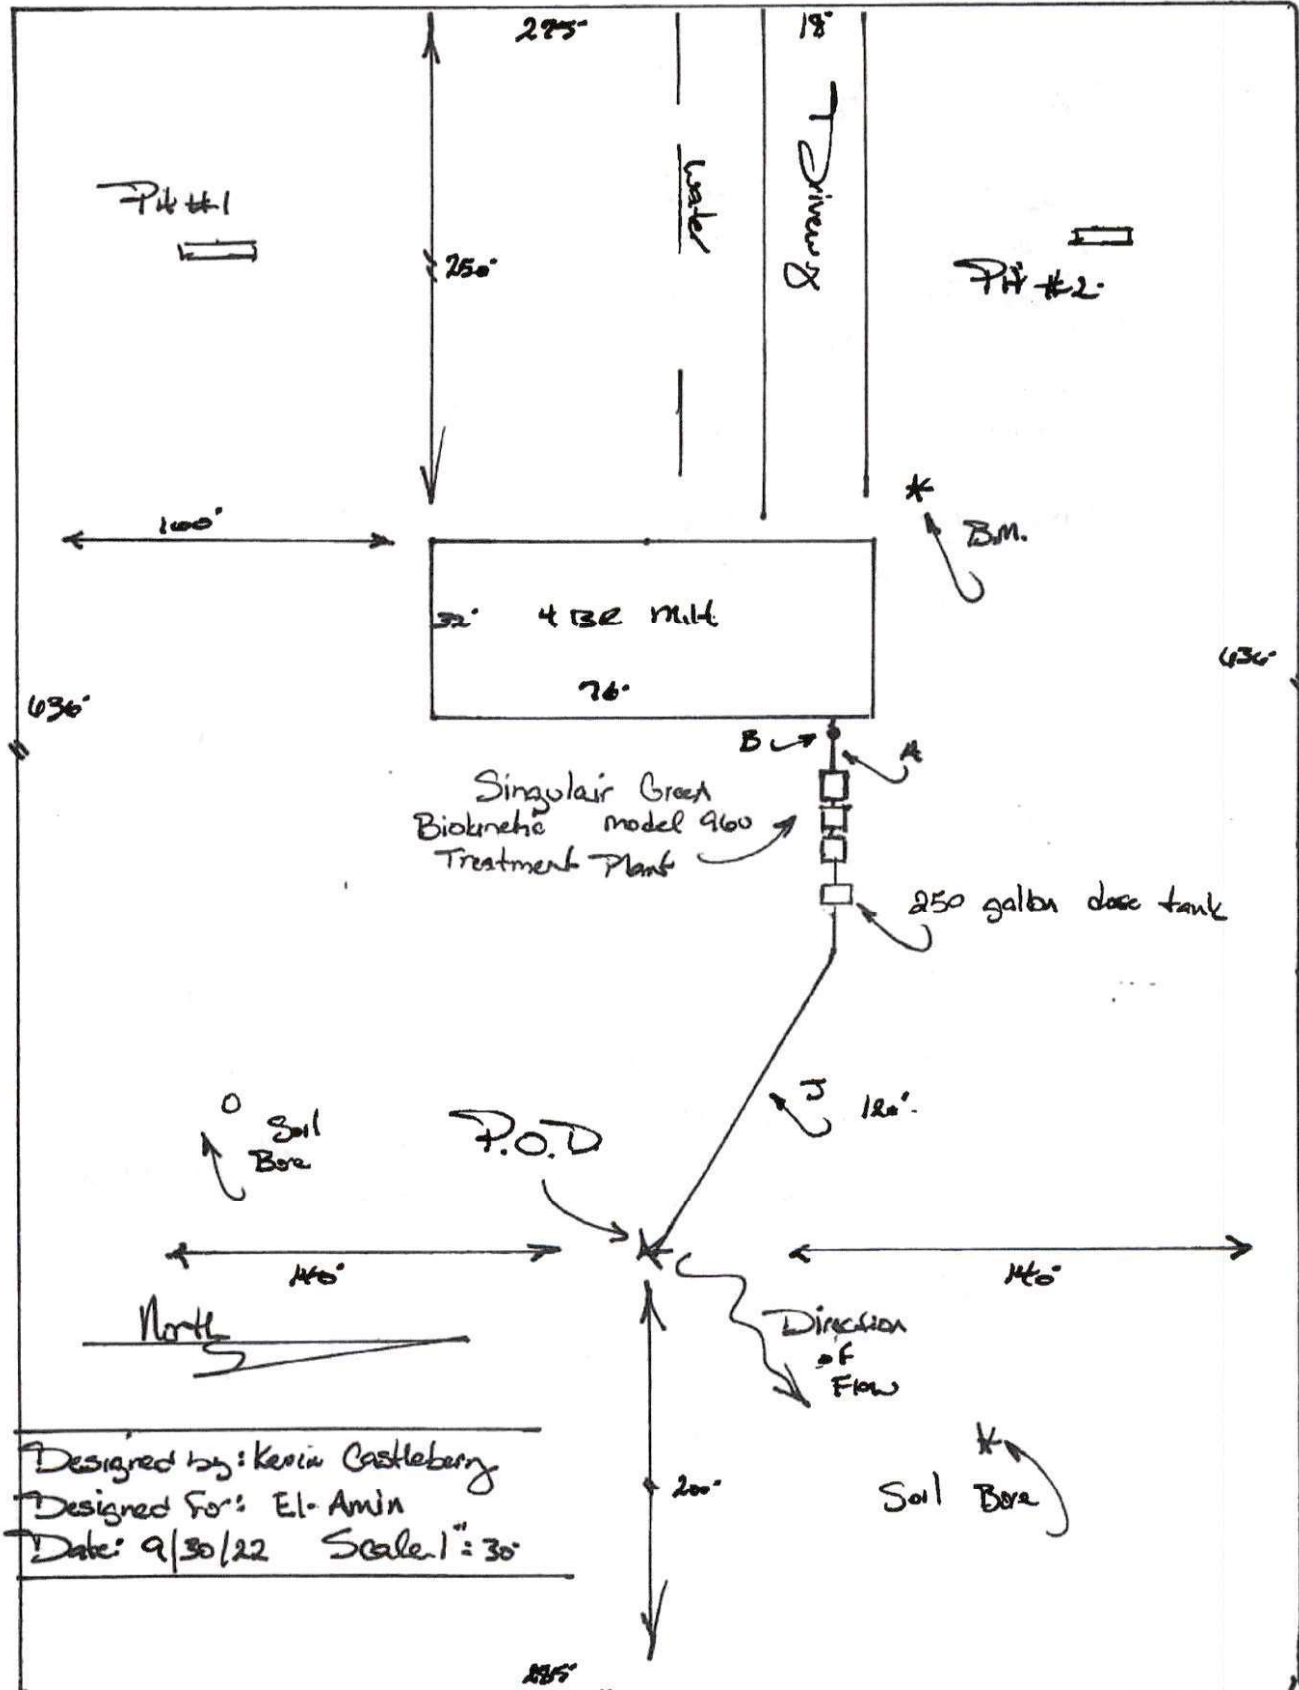 275'
18'
Driveway
Water
Pit #1
250'
Pit #2
100'
B.M.
32'
4 BR M.H.
76'
636'
636'
B
A
Singulair Green
Biokinetic model 960
Treatment Plant
250 gallon dose tank
J
120'
Soil
Bore
P.O.D
140'
140'
North
Direction
of
Flow
200'
Soil Bore
Designed by: Kevin Castleberry
Designed For: El-Amin
Date: 9/30/22 Scale 1": 30'